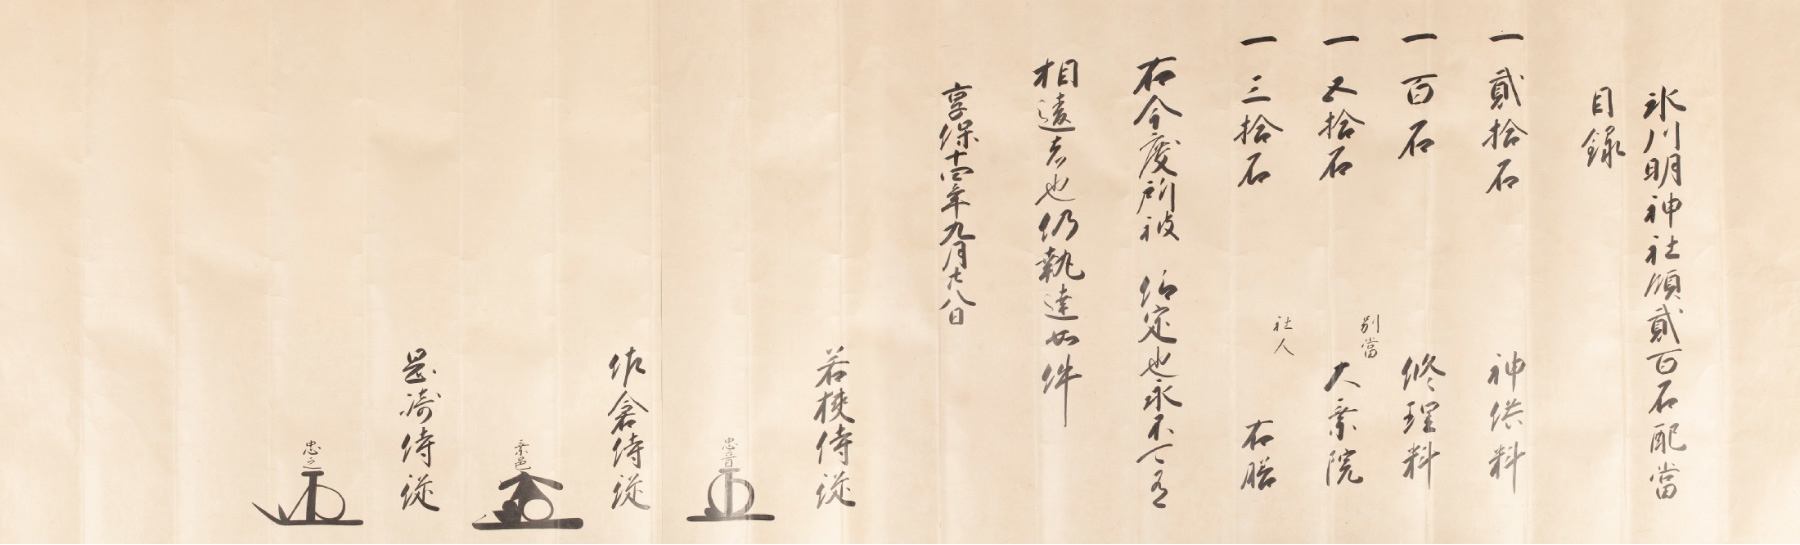 氷川明神社領貳百石配當
目録
一 貳拾石 神供料
一 百石 修理料
一 五拾石 別當 大乗院
一 三拾石 社人 右膳
右今度所被 仰定也永不可有
相違者也仍執達如件
享保十四年九月廿八日
若狭侍従
忠音
佐倉侍従
乗邑
岡崎侍従
忠之